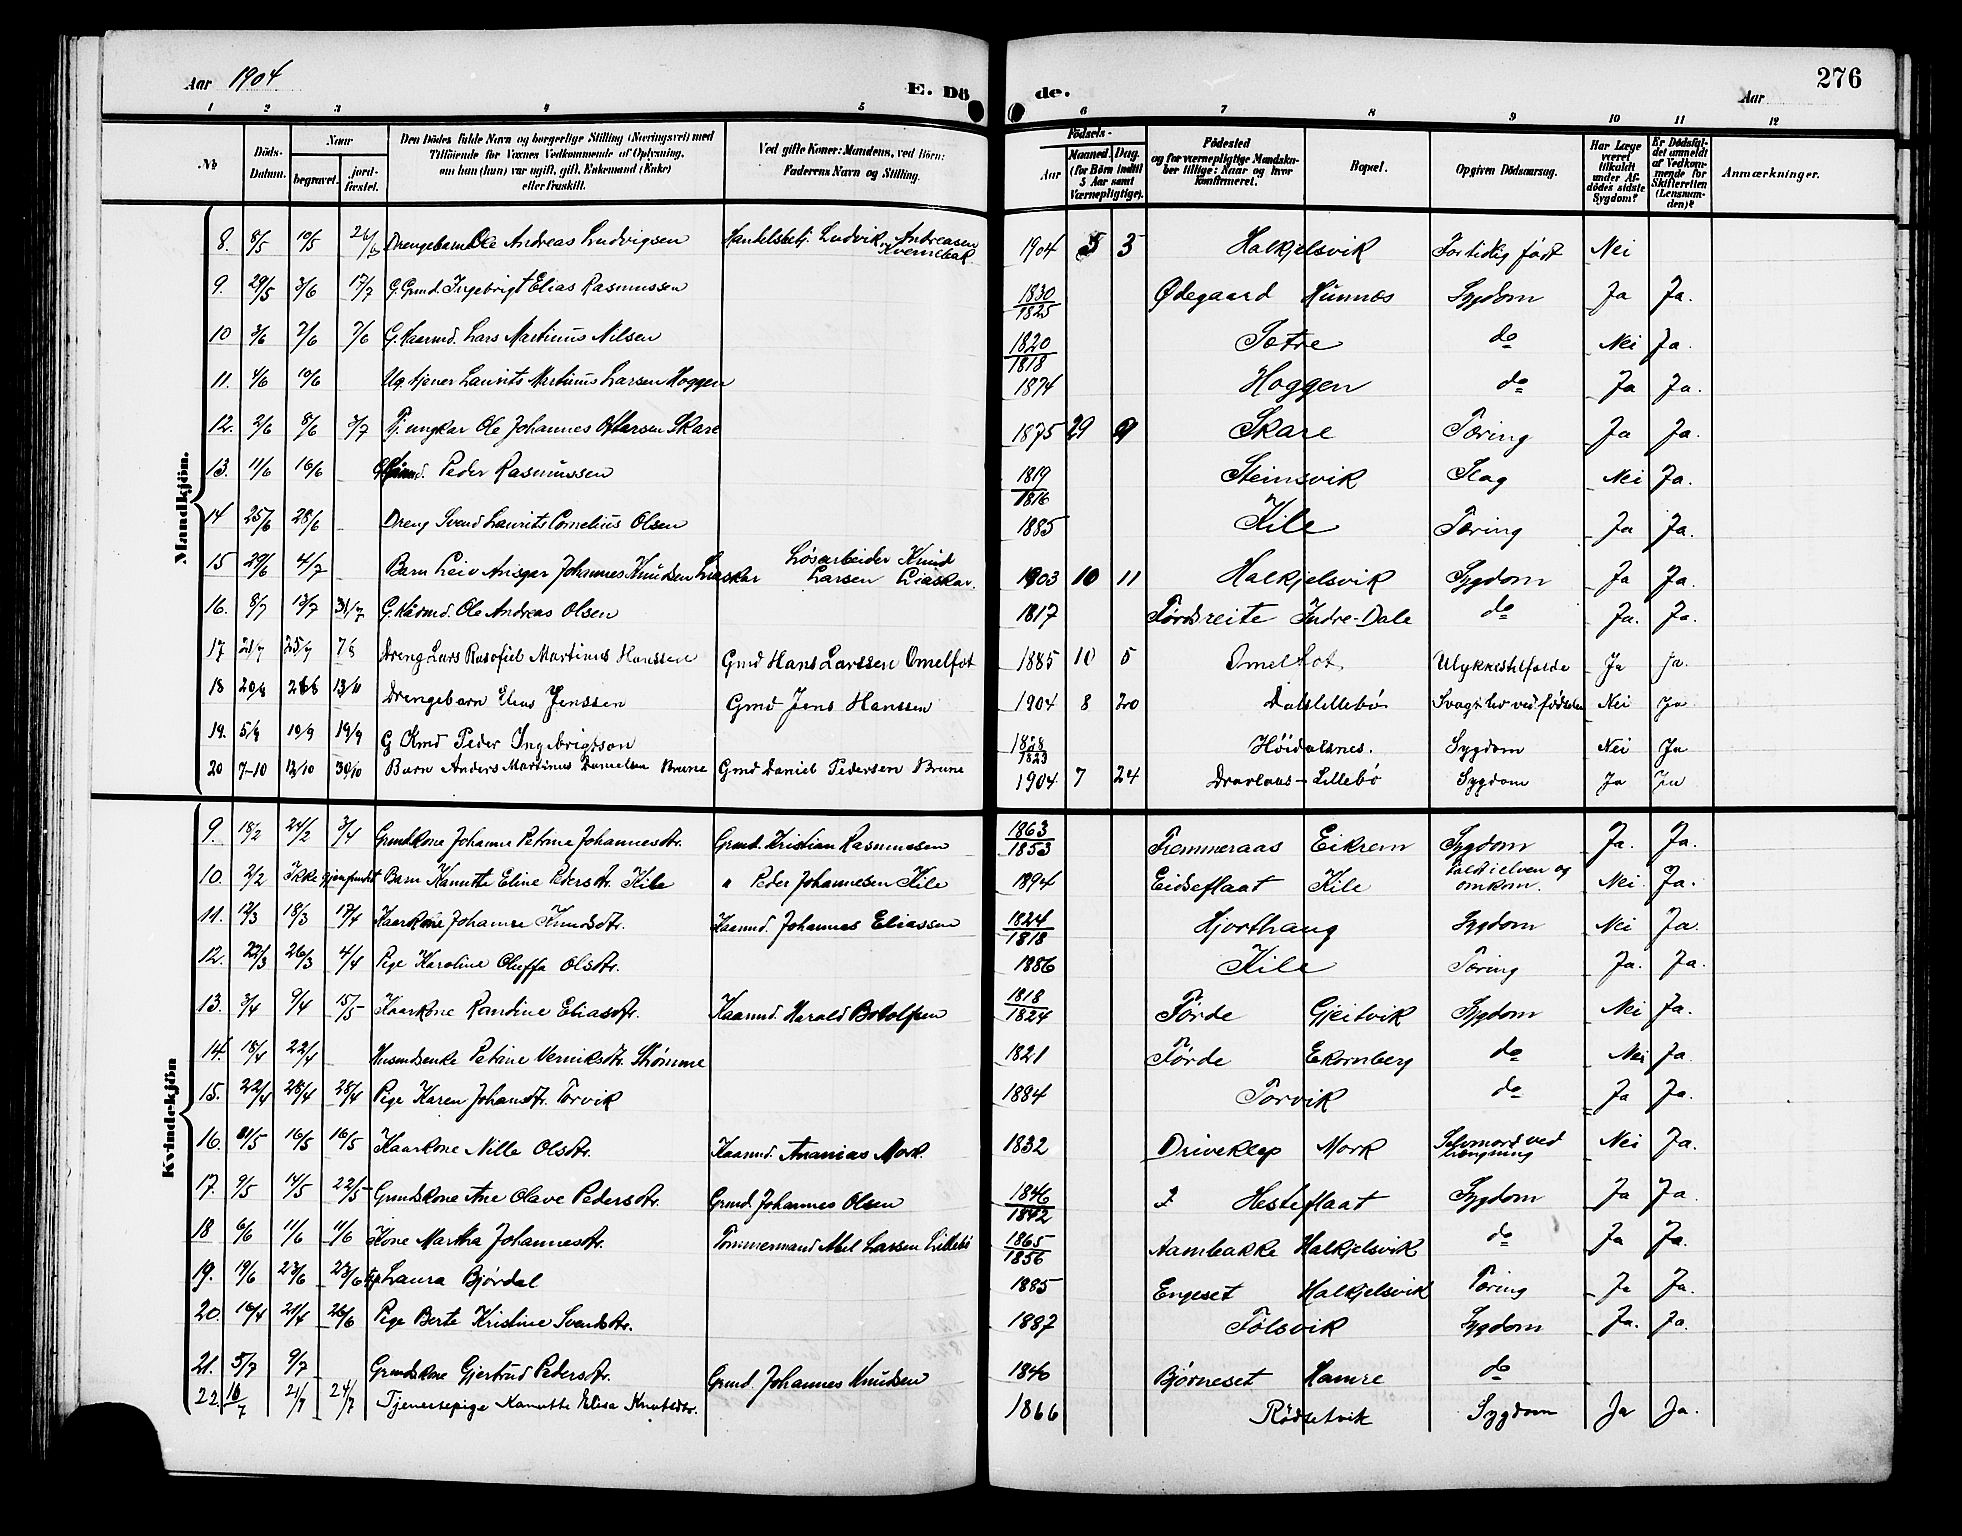 Aar 1904. E. Dö de. Aar 276
1 2 3 4 5 6 7 8 9 10 11 12
№ Döds-Datum. Naar begravet. jord-fæstet. Den Dödes fulde Navn og borgerlige Stilling (Næringsvei) med Tilföiende for Voxnes Vedkommende af Oplysning, om han (hun) var ugift, gift, Enkemand (Enke) eller fraskilt. Ved gifte Koner: Mandens, ved Börn: Faderens Navn og Stilling. Födsels- Aar Maaned. Dag. (for Börn indtil 5 Aar samt Værnepligtige). Födested og for værnepligtige Mandskaber tillige: Naar og hvor konfirmeret. Bopæl. Opgiven Dödsaarsag. Har Læge været tilkaldt under Afdödes sidste Sygdom? Er Dödsfaldet anmeldt af Vedkommende for Skifteretten (Lensmanden)? Anmærkninger.
Mandkjön.
8. 8/5 10/5 26/6 Drengebarn Ole Andreas Ludvigsen Handelsbetj. Ludvik Andreasen Kvennbak 1904 5 3 Halkjelsvik For tidlig født Nei
9. 29/5 3/6 17/7 G. Grmd. Ingebrigt Elias Rasmussen 1830/1825 Ødegaard Hunnæs Sygdom Ja Ja.
10 3/6 7/6 7/6 G. Kaarmd. Lars Martinus Nilsen 1820/1818 Sætre do Nei Ja.
11. 4/6 10/6 Ug. tjener Laurits Martinus Larsen Hoggen 1874 Hoggen do Ja Ja.
12. 2/6 8/6 3/7 Tj. ungkar Ole Johannes Ottersen Skare 1875 29 9 Skare Tæring Ja Ja.
13. 11/6 16/6 Peder Rasmussen 1819/1816 Steinsvik Slag Nei Ja.
14 25/6 28/6 Dreng Svend Laurits Cornelius Olsen 1885 Kile Tæring Ja Ja.
15 29/6 4/7 Barn Leiv Ansgar Johannes Knudsen Liaskar Løsarbeider Knud Larsen Liaskar. 1903 10 11 Halkjelsvik Sygdom Ja Ja.
16. 8/7 13/7 31/7 G. Kårmd. Ole Andreas Olsen 1817 Førdsreite Indre-Dale do Ja. Ja.
17 21/7 25/7 7/8 Dreng Lars Rasofiel Martinus Hanssen Gmd Hans Larssen Omelfot 1885 10 5 Omelfot Ulykkestilfælde Ja Ja.
18 20/8 26/8 13/11 Drengebarn Elias Jenssen Gmd Jens Hanssen 1904 8 20 Dalslillebø Svagt liv ved fødselen Nei Ja
19. 5/9 10/9 19/9 G Kmd Peder Ingebrigtson 1828/1823 Høidalsnes. Sygdom Nei Ja
20 7-10 12/10 30/10 Barn Anders Martinus Danielsen Brune Gmd Daniel Pedersen Brune 1904 7 24 Dravlaus-Lillebø Sygdom Ja Ja
Kvindekjön
9. 18/2 24/2 3/4 Grmdkone Johanne Petrine Johannesdtr. Grmd. Kristian Rasmussen 1863/1853 Tremmeraas Eikrem Sygdom Ja. Ja.
10. 2/2 Ikke gjenfundet Barn Kanutte Eline Pedersdtr. Kile " Peder Johannesen Kile 1894 Eidseflaat Kile Faldt i elven og omkom. Nei Ja.
11. 12/3 18/3 17/4 Kaarkone Johanne Knudsdtr. Kaarmd. Johannes Eliassen 1824/1818 Hjorthaug Sygdom Nei Ja
12. 22/3 26/3 4/4 Pige Karoline Oluffa Olsdtr. 1886 Kile Tæring Ja. Ja.
13. 3/4 9/4 15/5 Kaarkone Randine Eliasdtr. Kaarmd. Harald Botolfsen 1818/1824 Førde Gjeitvik Sygdom Nei Ja.
14. 18/4 22/4 Husmdsenke Petrine Verniksdtr. Strømme 1821 Førde Ekornberg do Nei Ja.
15. 22/4 28/4 28/4 Pige Karen Johansdtr. Torvik 1884 Torvik do Ja Ja.
16. 11/5 16/5 16/5 Kaarkone Nille Olsdtr. Kaarmd. Ananias Mork. 1832 Driveklep Mork Selvmord ved hængning Nei Ja.
17. 9/5 14/5 22/5 Grmdskone Ane Olave Pedersdtr. Grmd. Johannes Olsen 1846/1842 ? Hesteflaat Sygdom Ja Ja.
18 6/6 11/6 11/6 Kone Martha Johannesdtr. Tømmermand Abel Larsen Lillebø 1865/1856 Aambakke Halkjelsvik do Ja Ja.
19. 19/6 23/6 23/6 Laura Bjørdal 1885 Engeset Halkjelsvik Tæring Ja Ja.
20. 16/4 21/4 26/6 Pige Berte Kristine Svendsdtr. 1887 Følsvik Sygdom Ja. Ja.
21. 5/7 9/7 Grmdskone Gjertrud Pedersdtr. Grmd. Johannes Knudsen 1846 Bjørneset Hamre do
22 16/7 21/7 24/7 Tjenestepige Kanutte Elisa Knutsdtr. 1866 Rødsetvik Sygdom Ja Ja.